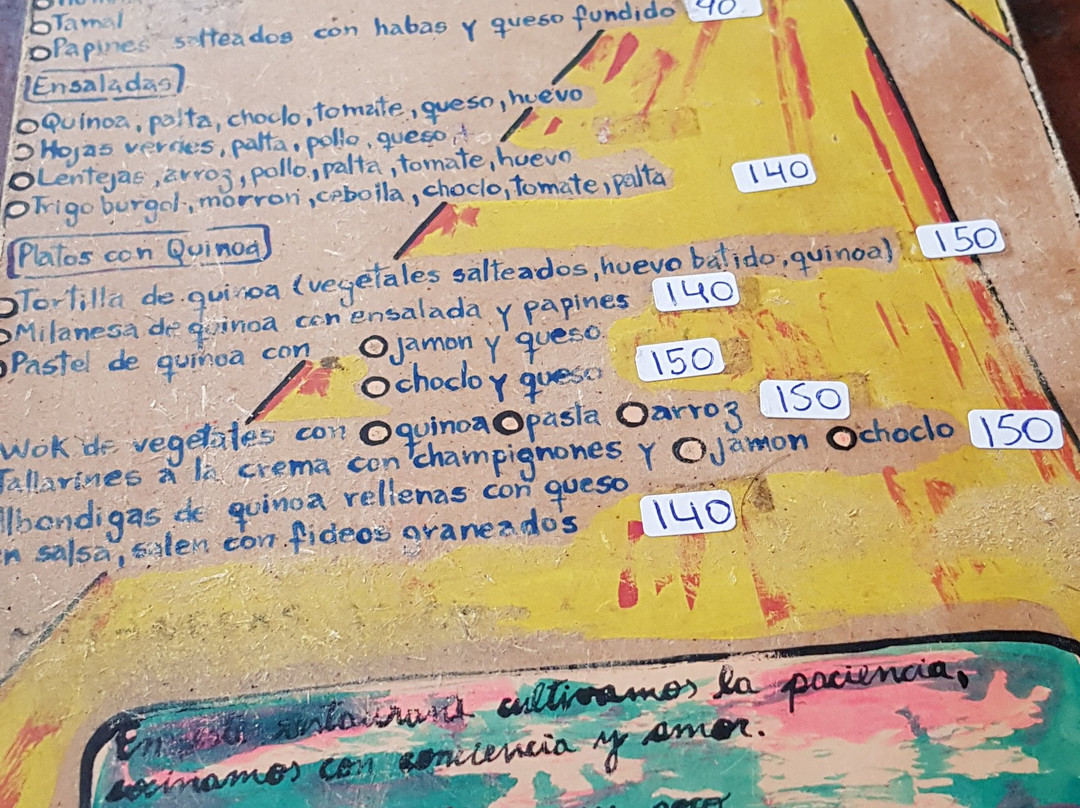 Tamal
Papines salteados con habas y queso fundido 90
Ensaladas
Quinoa, palta, choclo, tomate, queso, huevo
Hojas verdes, palta, pollo, queso
Lentejas, arroz, pollo, palta, tomate, huevo
Trigo burgol, morron, cebolla, choclo, tomate, palta 140
Platos con Quinoa
Tortilla de quinoa (vegetales salteados, huevo batido, quinoa) 150
Milanesa de quinoa con ensalada y papines 140
Pastel de quinoa con jamon y queso
choclo y queso 150
Wok de vegetales con quinoa pasta arroz 150
Tallarines a la crema con champignones y jamon choclo 150
Albondigas de quinoa rellenas con queso
en salsa, salen con fideos graneados 140
En este restaurant cultivamos la paciencia,
cocinamos con conciencia y amor.